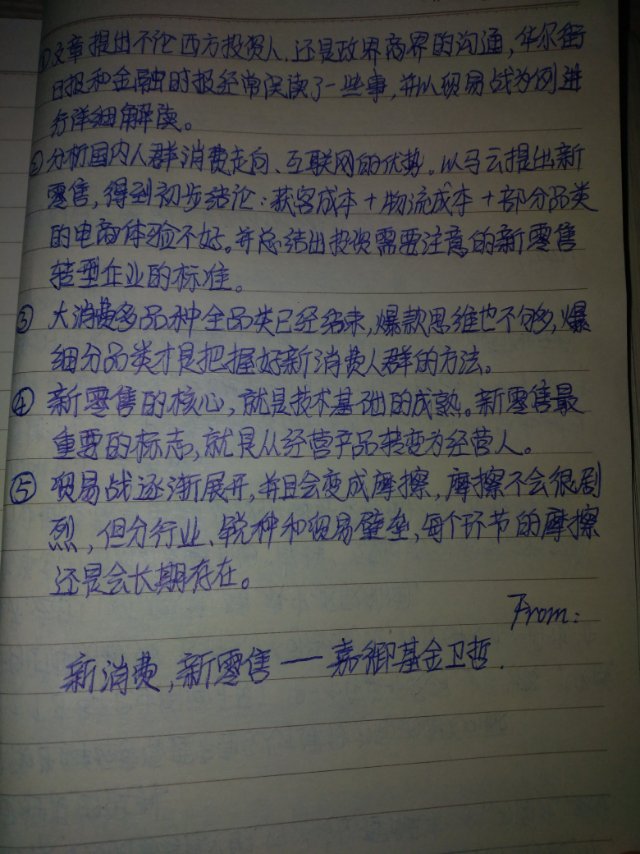 ①文章提出不论西方投资人、还是政界商界的沟通,华尔街
日报和金融时报经常误读了一些事,并以贸易战为例进
行详细解读。
②分析国内人群消费走向、互联网的优势。以马云提出新
零售,得到初步结论:获客成本+物流成本+部分品类
的电商体验不好。并总结出投资需要注意的新零售
转型企业的标准。
③ 大消费多品种全品类已经结束,爆款思维也不够,爆
细分品类才是把握好新消费人群的方法。
④ 新零售的核心,就是技术基础的成熟。新零售最
重要的标志,就是从经营产品转变为经营人。
⑤ 贸易战逐渐展开,并且会变成摩擦,摩擦不会很剧
烈,但分行业、税种和贸易壁垒,每个环节的摩擦
还是会长期存在。
From:
新消费,新零售——嘉御基金卫哲.